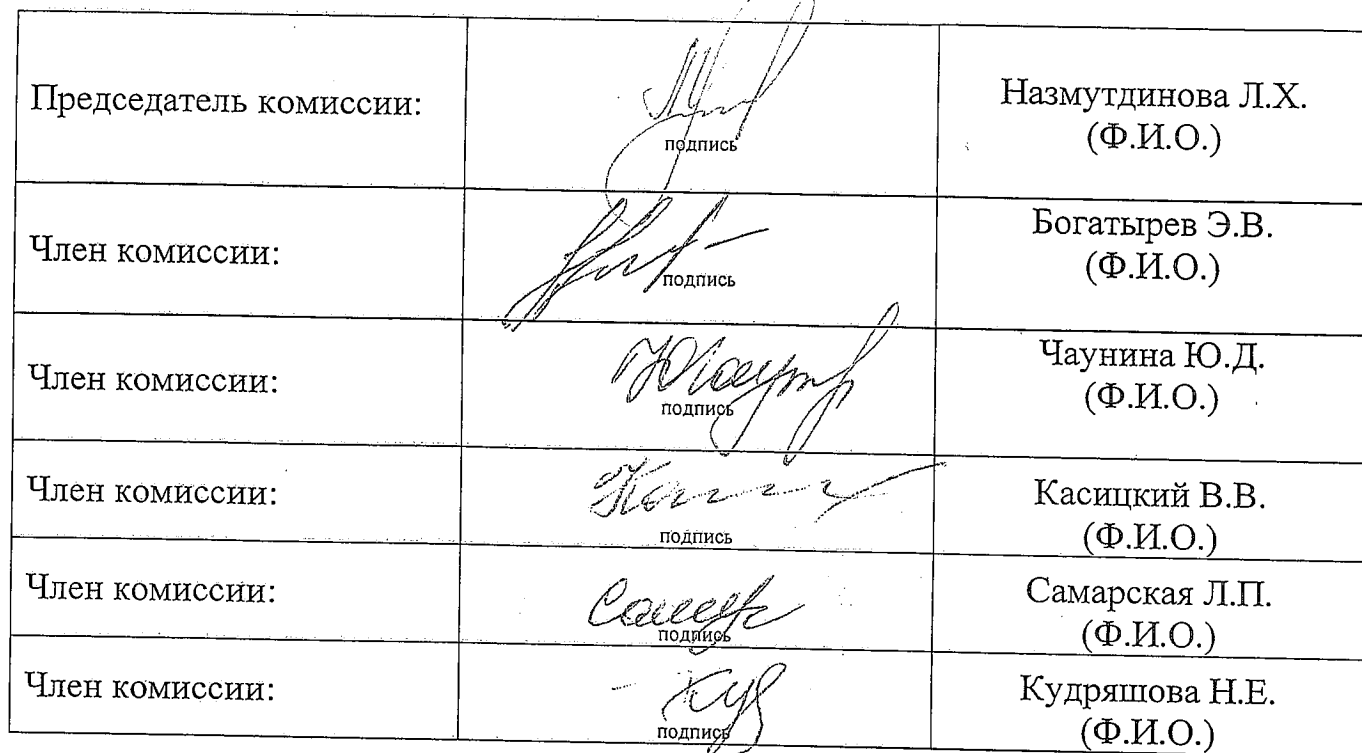 Председатель комиссии:
подпись
Назмутдинова Л.Х.
(Ф.И.О.)
Член комиссии:
подпись
Богатырев Э.В.
(Ф.И.О.)
Член комиссии:
подпись
Чаунина Ю.Д.
(Ф.И.О.)
Член комиссии:
подпись
Касицкий В.В.
(Ф.И.О.)
Член комиссии:
подпись
Самарская Л.П.
(Ф.И.О.)
Член комиссии:
подпись
Кудряшова Н.Е.
(Ф.И.О.)